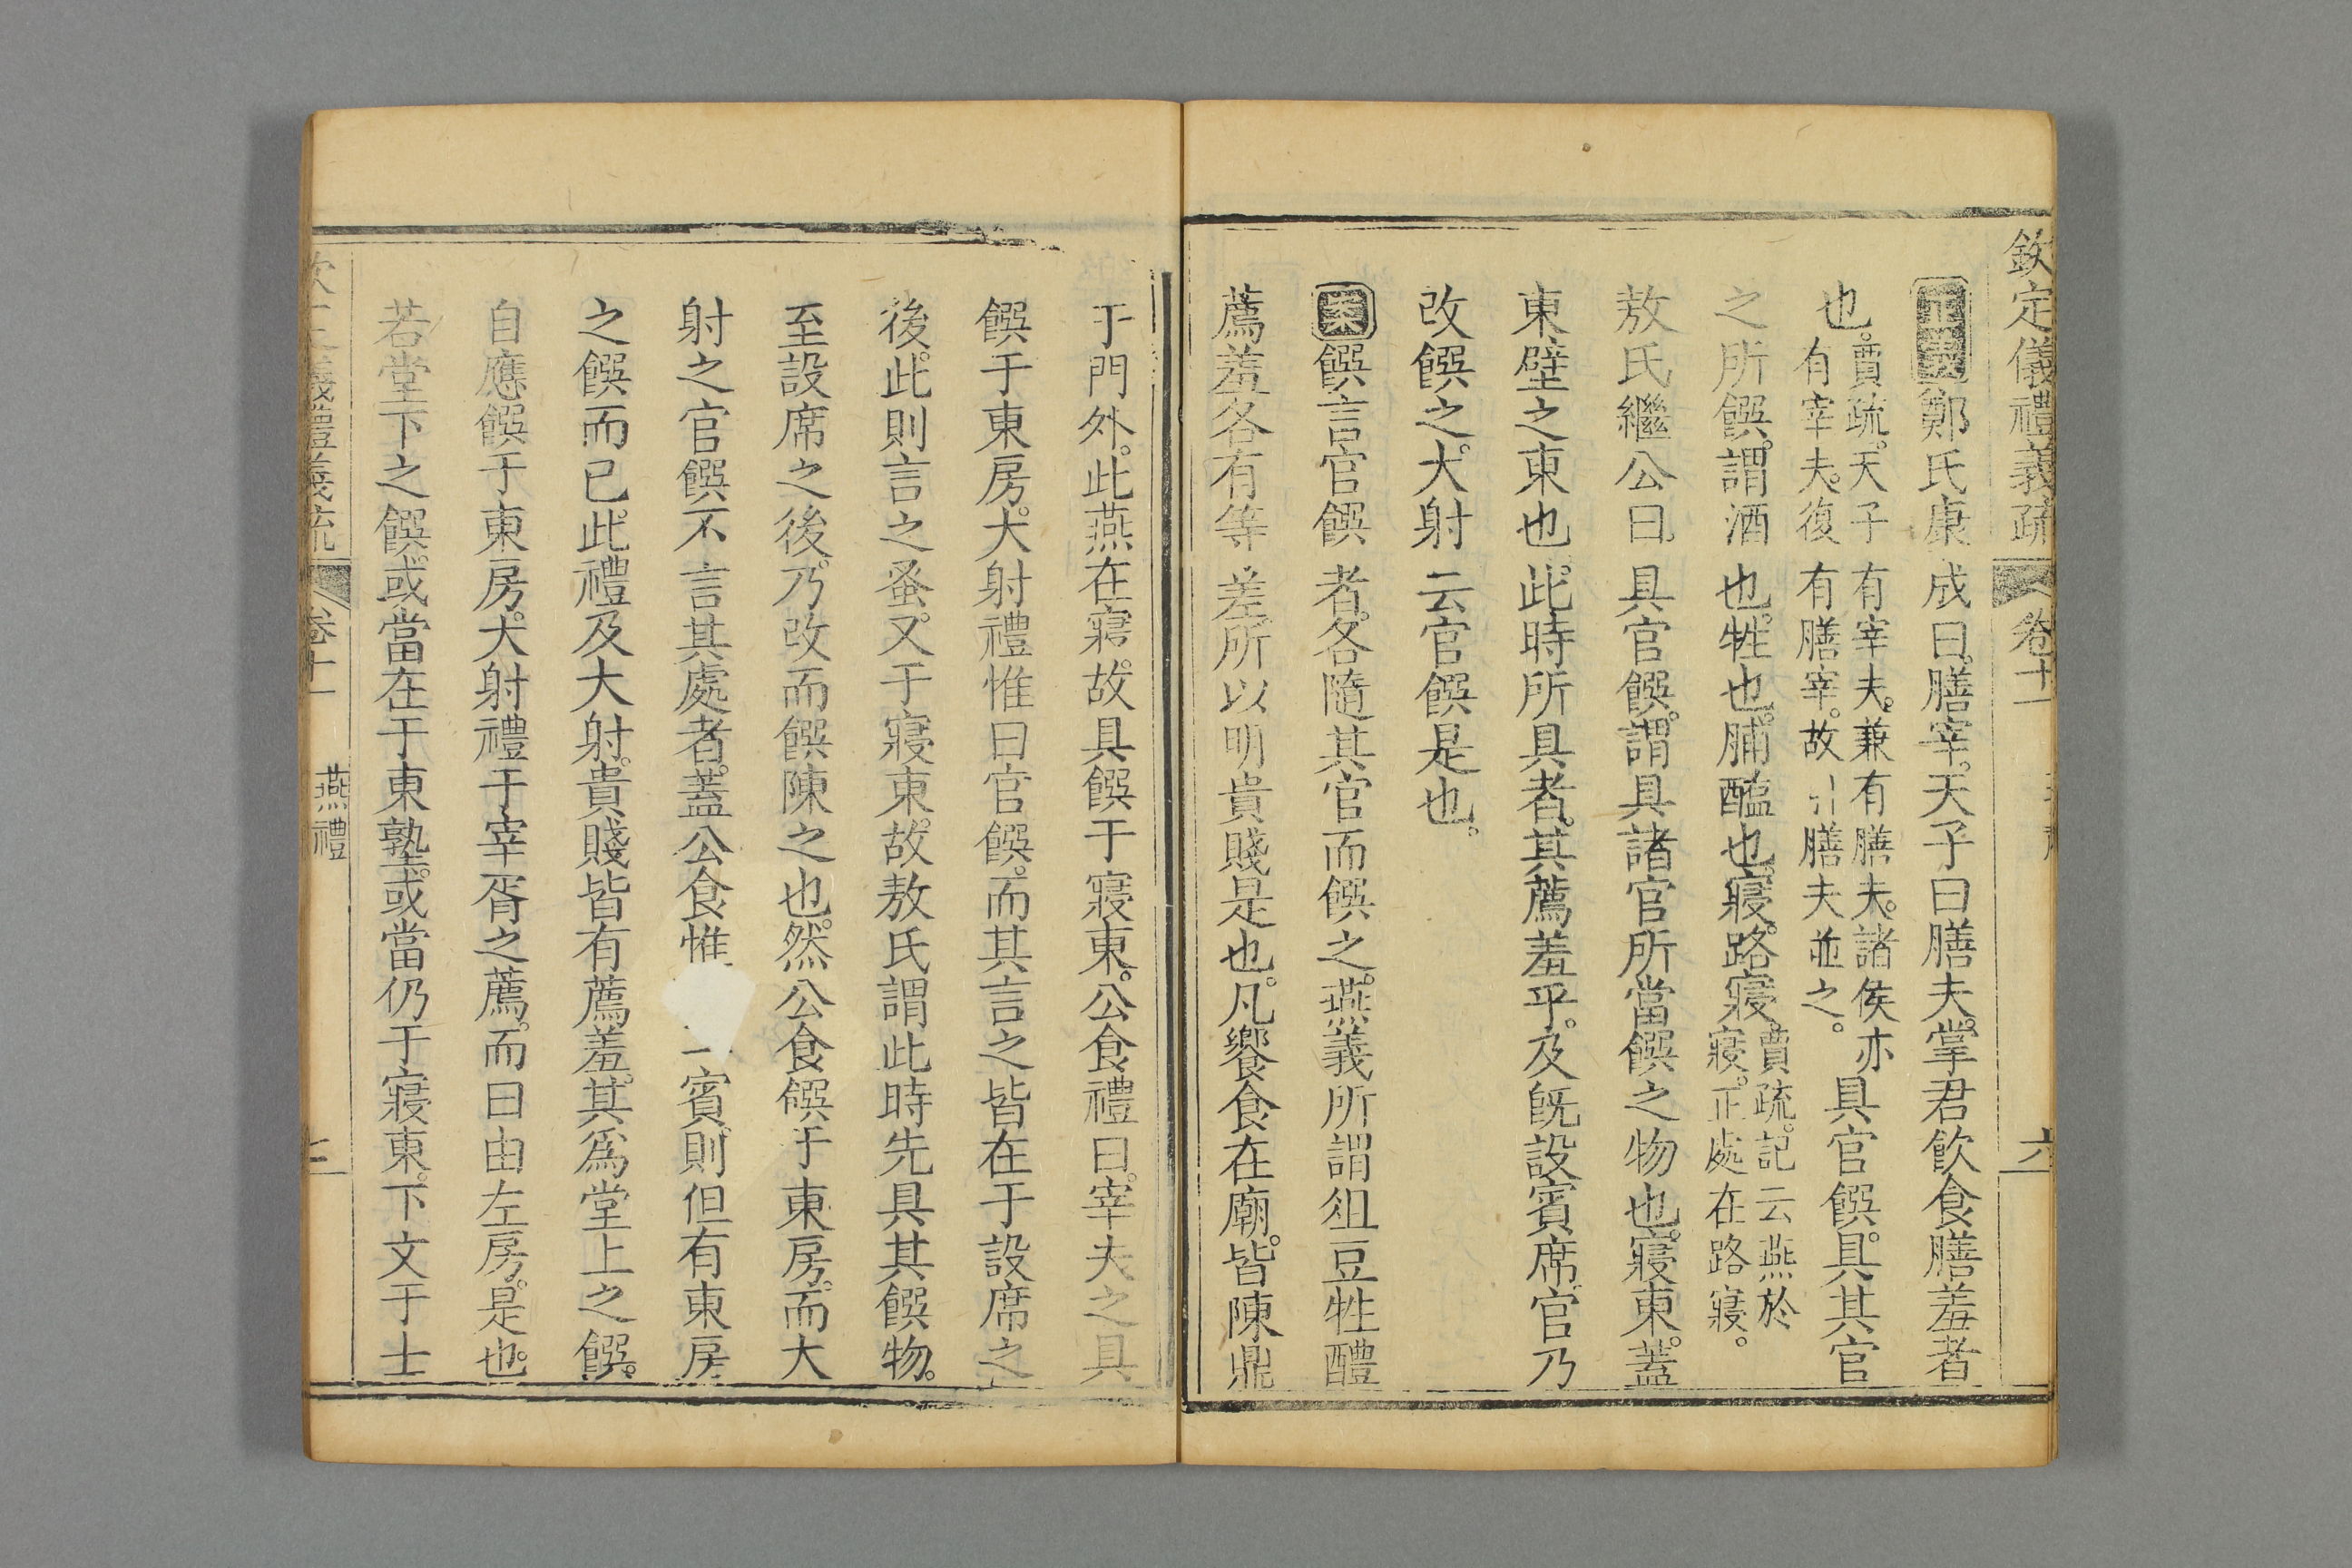 欽定儀禮義疏 卷十一 六
正義鄭氏康成曰。膳宰。天子曰膳夫。掌君飲食膳羞者
也。賈疏。天子有宰夫。兼有膳夫。諸侯亦
有宰夫。復有膳宰。故引膳夫並之。具官饌。具其官
之所饌。謂酒也。牲也。脯醢也。寢。路寢。賈疏。記云燕於
寢。正處在路寢。
敖氏繼公曰。具官饌。謂具諸官所當饌之物也。寢東。蓋
東壁之東也。此時所具者。其薦羞乎。及旣設賓席。官乃
改饌之。大射云官饌是也。
案饌言官饌者。各隨其官而饌之。燕義所謂俎豆牲醴
薦羞各有等差。所以明貴賤是也。凡饗食在廟。皆陳鼎
于門外。此燕在寢。故具饌于寢東。公食禮曰。宰夫之具
饌于東房。大射禮惟曰官饌。而其言之皆在于設席之
後。此則言之蚤。又于寢東。故敖氏謂此時先具其饌物。
至設席之後。乃改而饌陳之也。然公食饌于東房。而大
射之官饌不言其處者。蓋公食惟一賓。則但有東房
之饌而已。此禮及大射。貴賤皆有薦羞。其爲堂上之饌。
自應饌于東房。大射禮于宰胥之薦。而曰由左房。是也。
若堂下之饌。或當在于東塾。或當仍于寢東。下文于士
義禮義疏 卷十一 燕禮